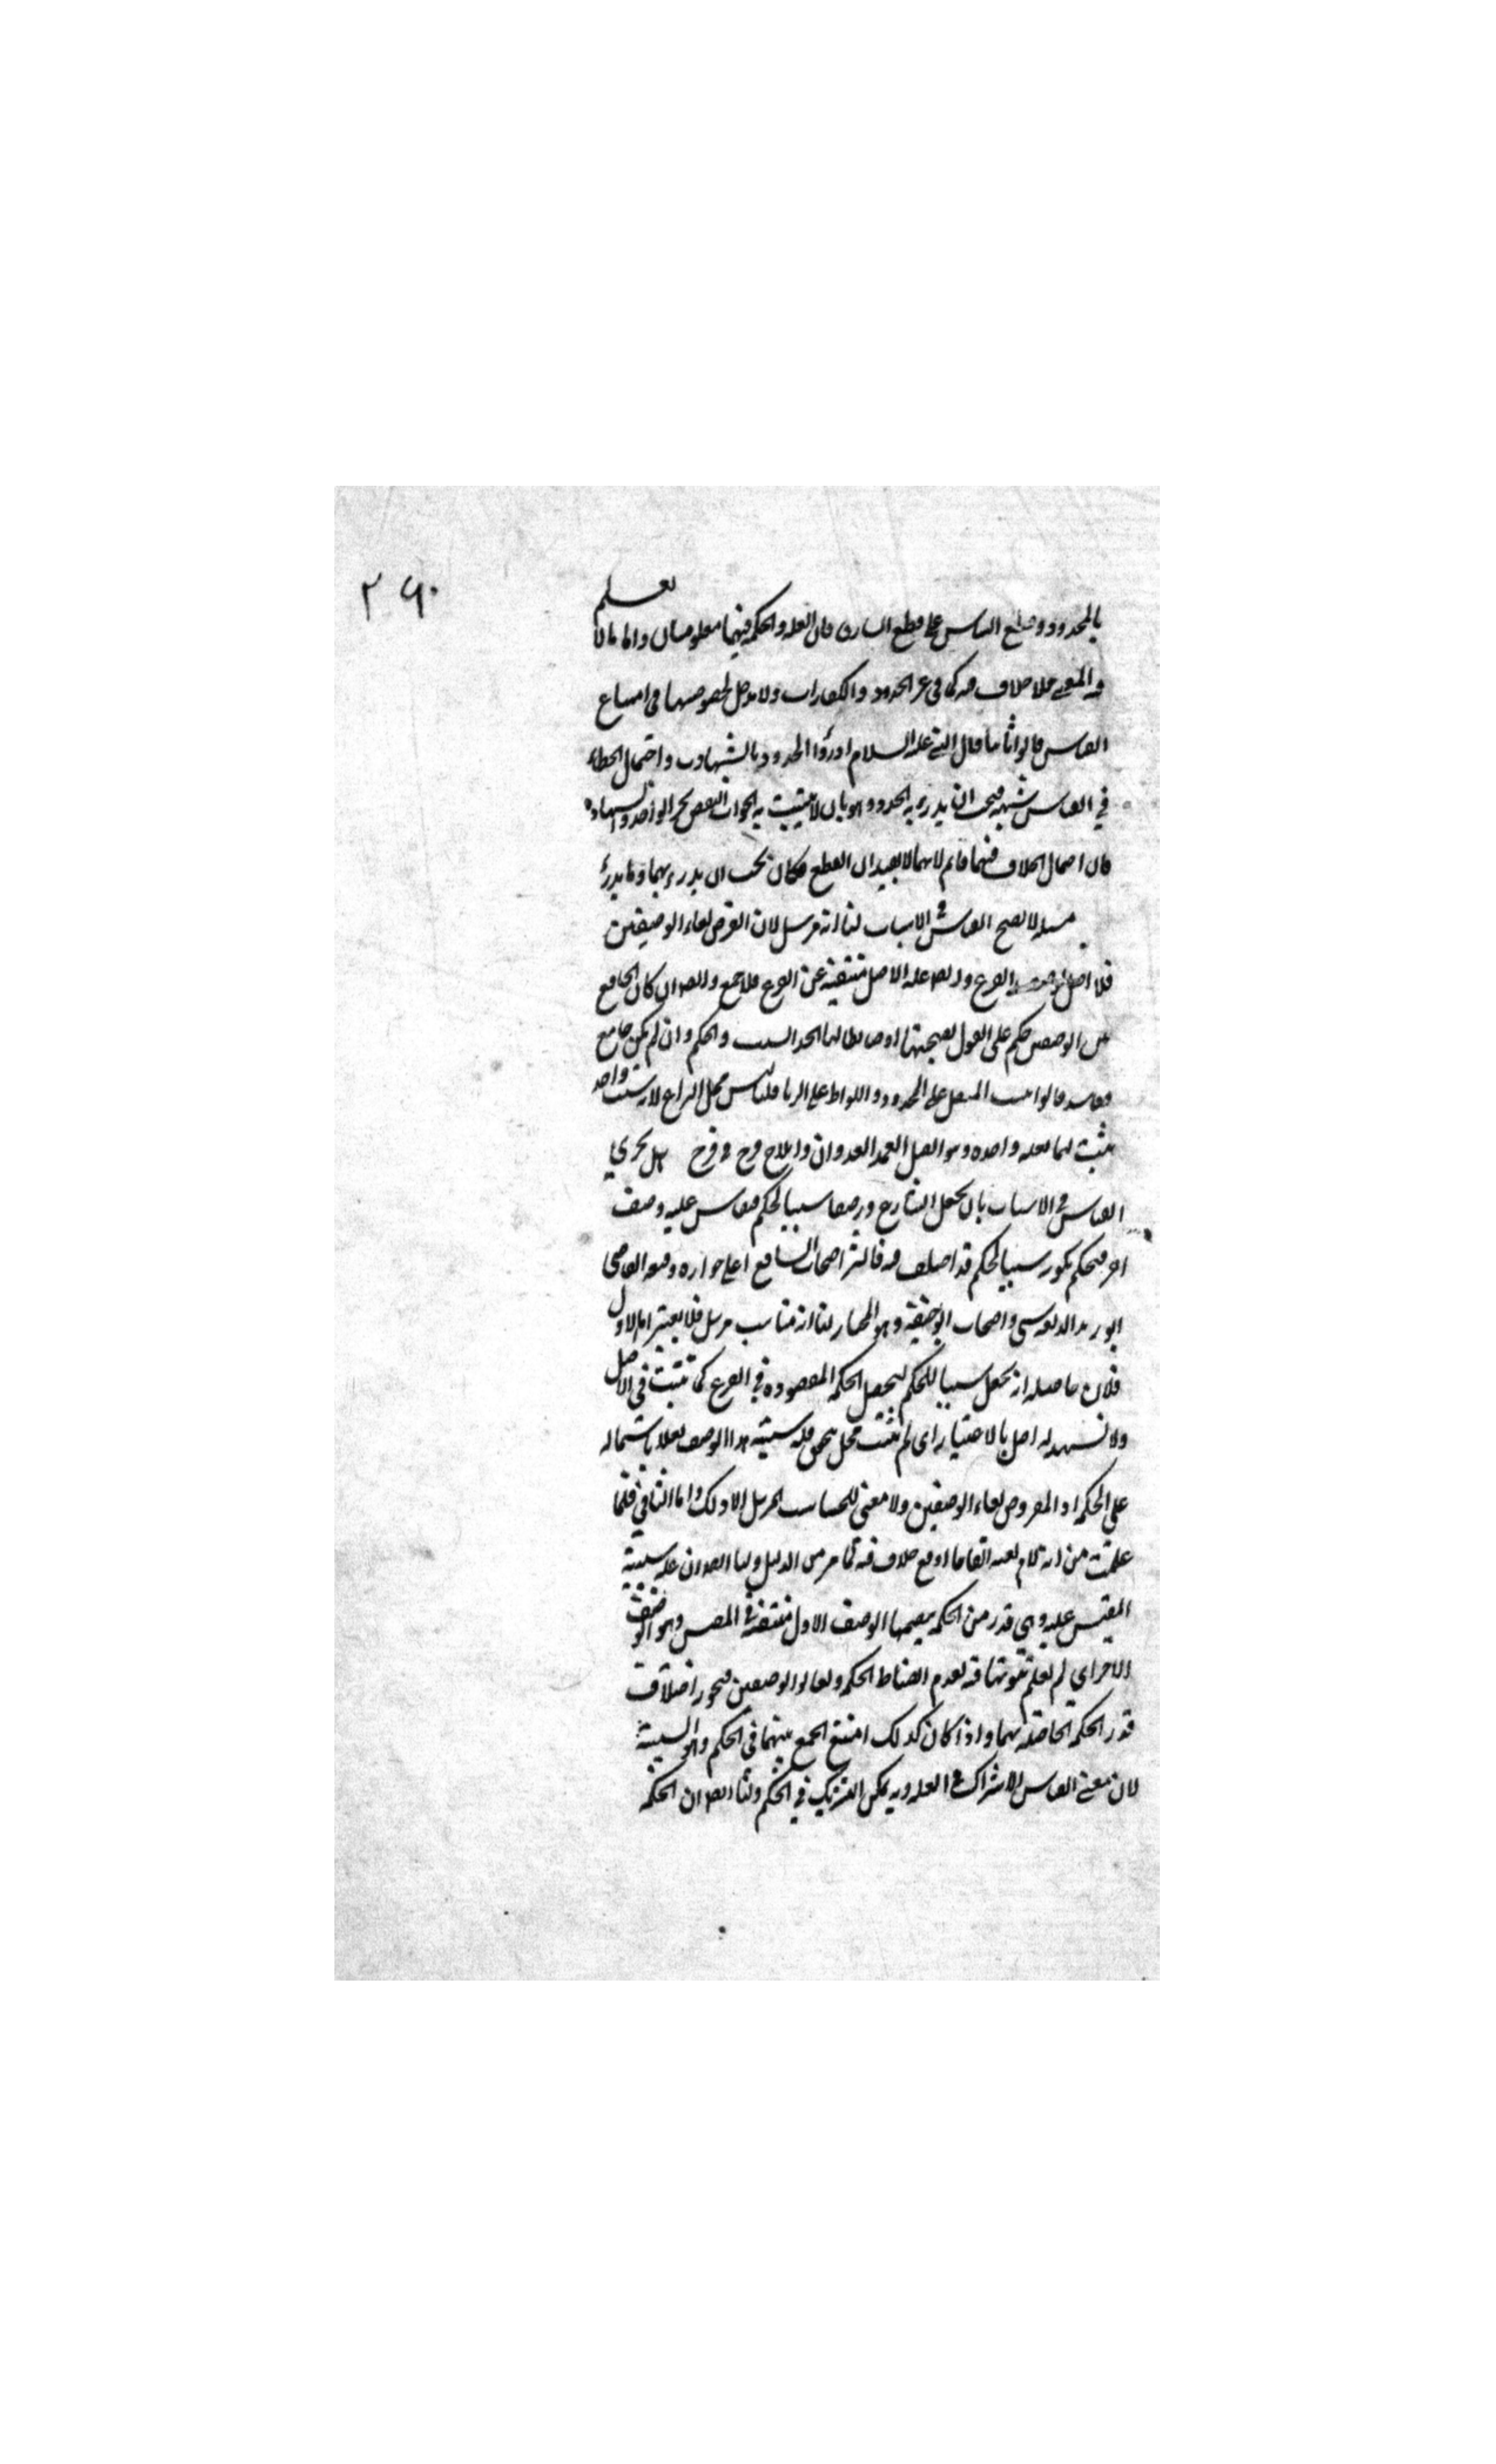 ٢٦٠
بالمحدود وقطع النباش على قطع السارق فان العله والحكمة فيهما معلومتان واما ما لا يعلم
فيه المعنى فلا خلاف فيه كما في غير الحدود والكفارات ولا مدخل لخصوصيها في امتناع
القياس قالوا ثانيا قال النبي عليه السلام ادرؤا الحدود بالشبهات واحتمال الخطاء
في القياس شبهة فيجب ان يدرء به الحدود وهو بان لا يثبت به الجواب النقض بخبر الواحد والشهادة
فان احتمال الخلاف فيهما قائم لانهما لا يفيدان القطع فكان يجب ان يدرء بهما وما يدرء
مسئله لا يصح القياس في الاسباب لنا انه مرسل لان الفرض تغاير الوصفين
فلا اصل الفرع وايضا عله الاصل منتفية عن الفرع فلا جمع وايضا ان كان الجامع
بين الوصفين حكم على القول بصحتها او ضابطا لها اتحد السبب والحكم وان لم يكن جامع
ففاسد قالوا ثبت المثقل على المحدود واللواط على الزنا قلنا ليس محل النزاع لانه سبب واحد
يثبت لهما بعله واحده وهو القتل العمد العدوان وايلاج فرج في فرج هل يجري
القياس في الاسباب بان يجعل الشارع وصفا سببا لحكم فيقاس عليه وصف
اخر فيحكم بكونه سببا لحكم قد اختلف فيه فاكثر اصحاب الشافعي على جوازه ومنعه القاضي
ابو زيد الدبوسي واصحاب ابو حنيفة وهو المختار لنا انه مناسب مرسل فلا يعتبر اما الاول
فلان حاصله ان يجعل سببا للحكم ليحصل الحكمة المقصوده في الفرع كما تثبت في الاصل
ولا تشهد له اصل بالاعتبار اي لم يثبت محل تحقق فيه سببية هذا الوصف معللا باشتماله
على الحكمة اذ المفروض تغاير الوصفين ولا معنى للمناسب المرسل الا ذلك واما الثاني فلما
علمت من انه لا يعتبر اتفاقا او مع خلاف فيه لما مر من الدليل ولنا ايضا ان عله سببية
المقيس عليه وهي قدر من الحكمة يتضمنها الوصف الاول منتفية في المقيس وهو الوصف
الاخر اي لم يعلم ثبوتها فيه لعدم انضباط الحكمه وتغاير الوصفين فيجوز اختلاف
قدر الحكمة الحاصله بهما واذا كان كذلك امتنع الجمع بينهما في الحكم وهو السببية
لان معنى القياس الاشتراك في العله وبه يمكن التشريك في الحكم ولنا ايضا ان الحكمة